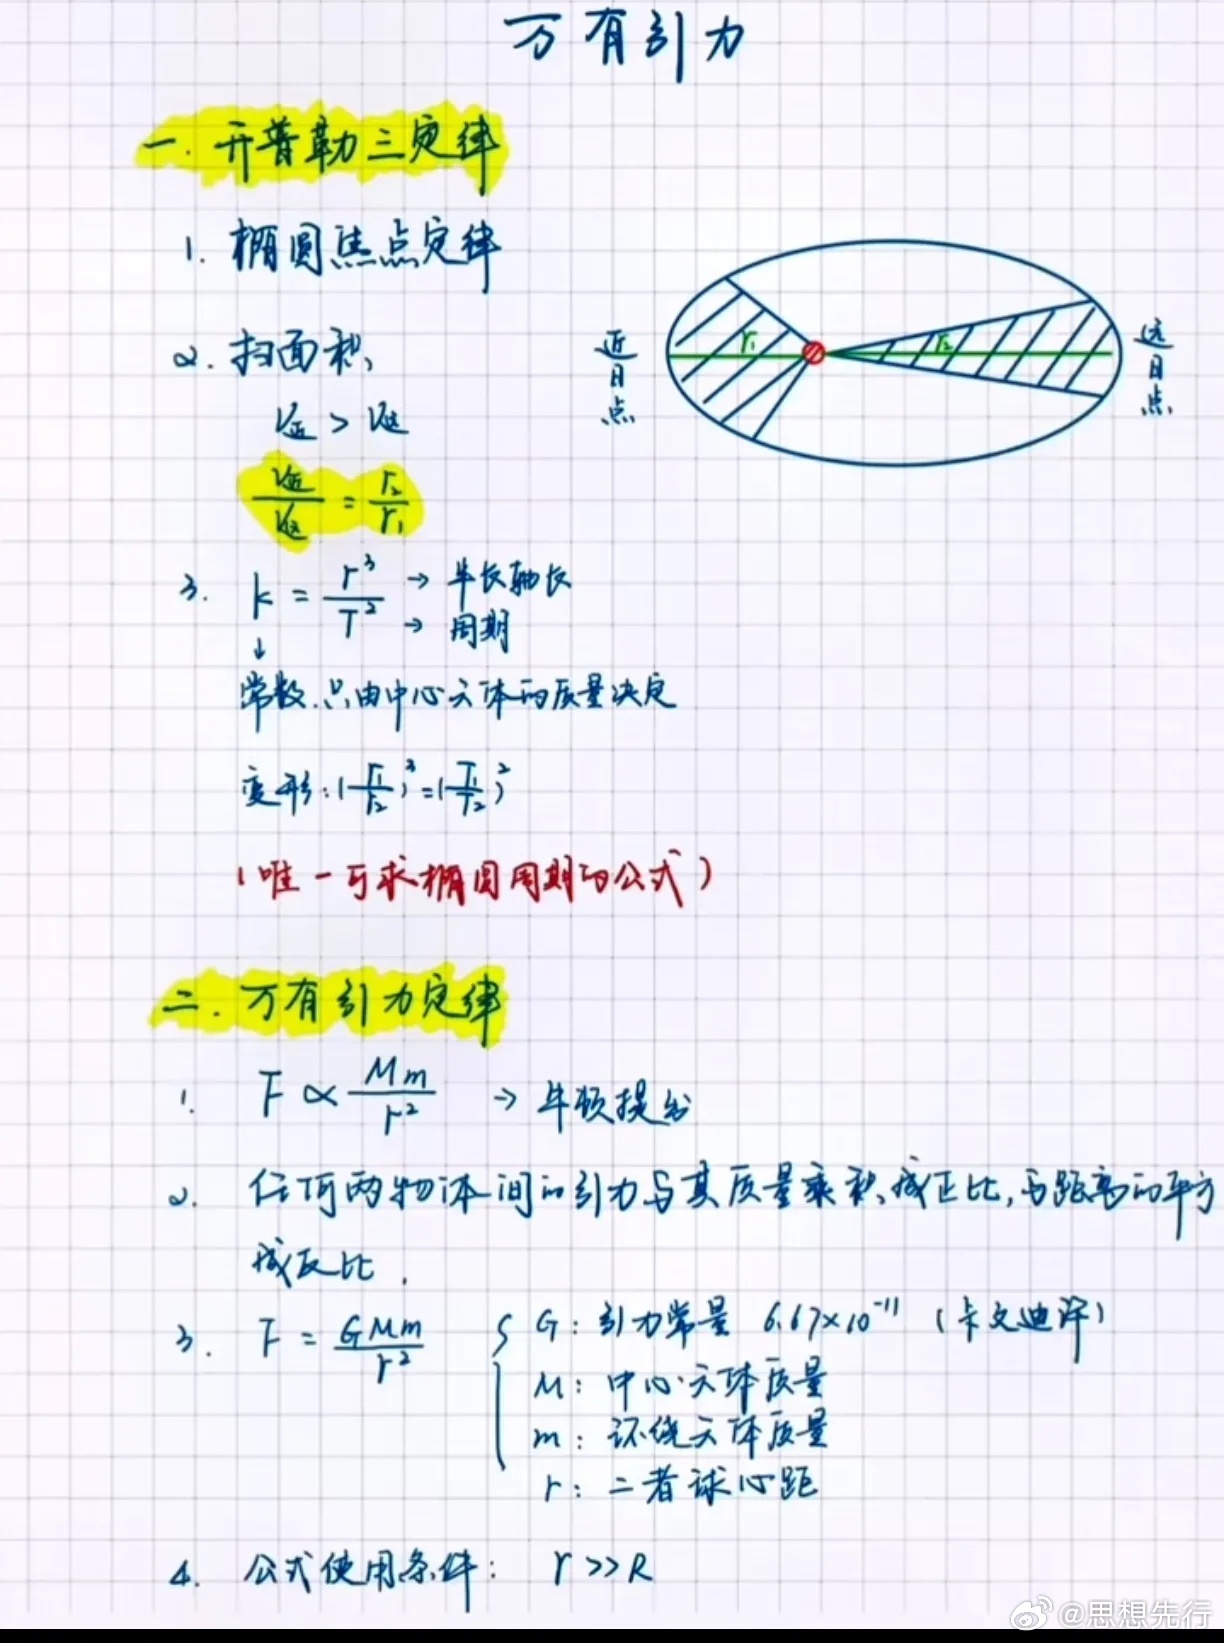 万有引力
一. 开普勒三定律
1. 椭圆焦点定律
2. 扫面积
V近 > V远
V近/V远 = r₂/r₁
近日点
r₁
r₂
远日点
3. k = r³/T² → 半长轴长
→ 周期
↓
常数.只由中心天体的质量决定
变形:(r₁/r₂)³=(T₁/T₂)²
(唯一可求椭圆周期的公式)
二. 万有引力定律
1. F ∝ Mm/r² → 牛顿提出
2. 任何两物体间的引力与其质量乘积成正比,与距离的平方
成反比.
3. F = GMm/r² { G: 引力常量 6.67×10⁻¹¹ (卡文迪许)
M: 中心天体质量
m: 环绕天体质量
r: 二者球心距
4. 公式使用条件: r >> R
@思想先行